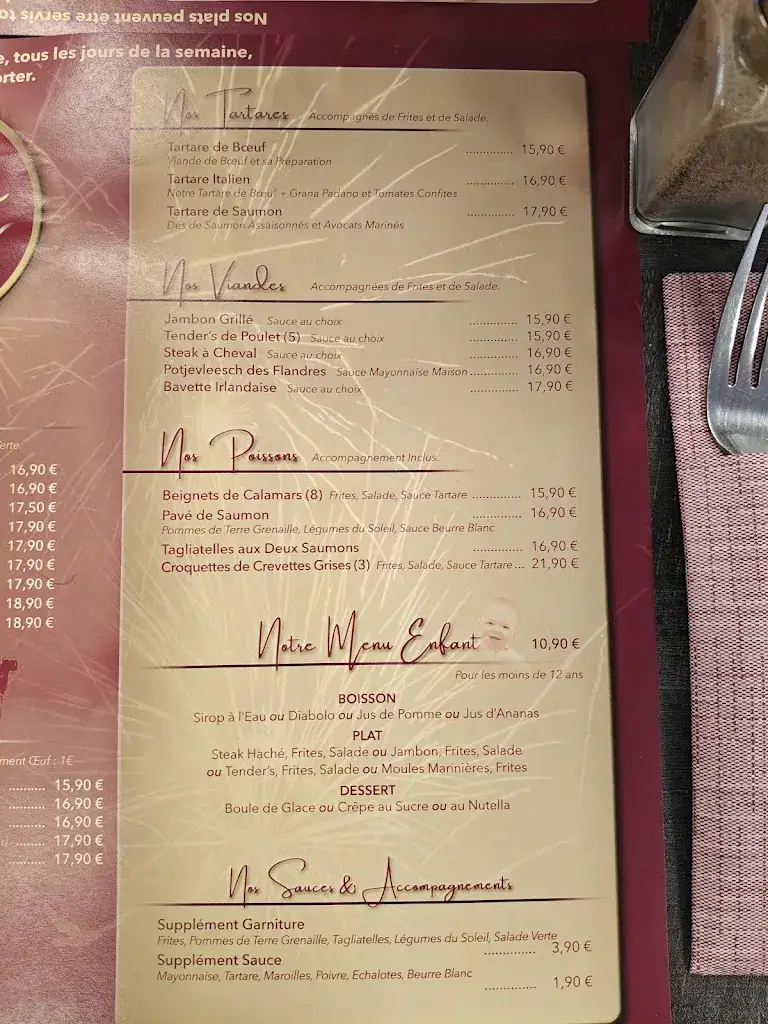 Nos plats peuvent être servis to
e, tous les jours de la semaine,
orter.
Nos Tartares Accompagnés de Frites et de Salade.
Tartare de Bœuf ............. 15,90 €
Viande de Bœuf et sa Préparation
Tartare Italien ............. 16,90 €
Notre Tartare de Bœuf + Grana Padano et Tomates Confites
Tartare de Saumon ............. 17,90 €
Dés de Saumon Assaisonnés et Avocats Marinés
Nos Viandes Accompagnées de Frites et de Salade.
Jambon Grillé Sauce au choix ............. 15,90 €
Tender's de Poulet (5) Sauce au choix ............. 15,90 €
Steak à Cheval Sauce au choix ............. 16,90 €
Potjevleesch des Flandres Sauce Mayonnaise Maison ............. 16,90 €
Bavette Irlandaise Sauce au choix ............. 17,90 €
Nos Poissons Accompagnement Inclus.
Beignets de Calamars (8) Frites, Salade, Sauce Tartare ............. 15,90 €
Pavé de Saumon ............. 16,90 €
Pommes de Terre Grenaille, Légumes du Soleil, Sauce Beurre Blanc
Tagliatelles aux Deux Saumons ............. 16,90 €
Croquettes de Crevettes Grises (3) Frites, Salade, Sauce Tartare ... 21,90 €
Notre Menu Enfant 10,90 €
Pour les moins de 12 ans
BOISSON
Sirop à l'Eau ou Diabolo ou Jus de Pomme ou Jus d'Ananas
PLAT
Steak Haché, Frites, Salade ou Jambon, Frites, Salade
ou Tender's, Frites, Salade ou Moules Marinières, Frites
DESSERT
Boule de Glace ou Crêpe au Sucre ou au Nutella
Nos Sauces & Accompagnements
Supplément Garniture
Frites, Pommes de Terre Grenaille, Tagliatelles, Légumes du Soleil, Salade Verte
............. 3,90 €
Supplément Sauce
Mayonnaise, Tartare, Maroilles, Poivre, Echalotes, Beurre Blanc
............. 1,90 €
erte.
16,90 €
16,90 €
17,50 €
17,90 €
17,90 €
17,90 €
17,90 €
18,90 €
18,90 €
ment Œuf : 1€
......... 15,90 €
......... 16,90 €
......... 16,90 €
......... 17,90 €
......... 17,90 €